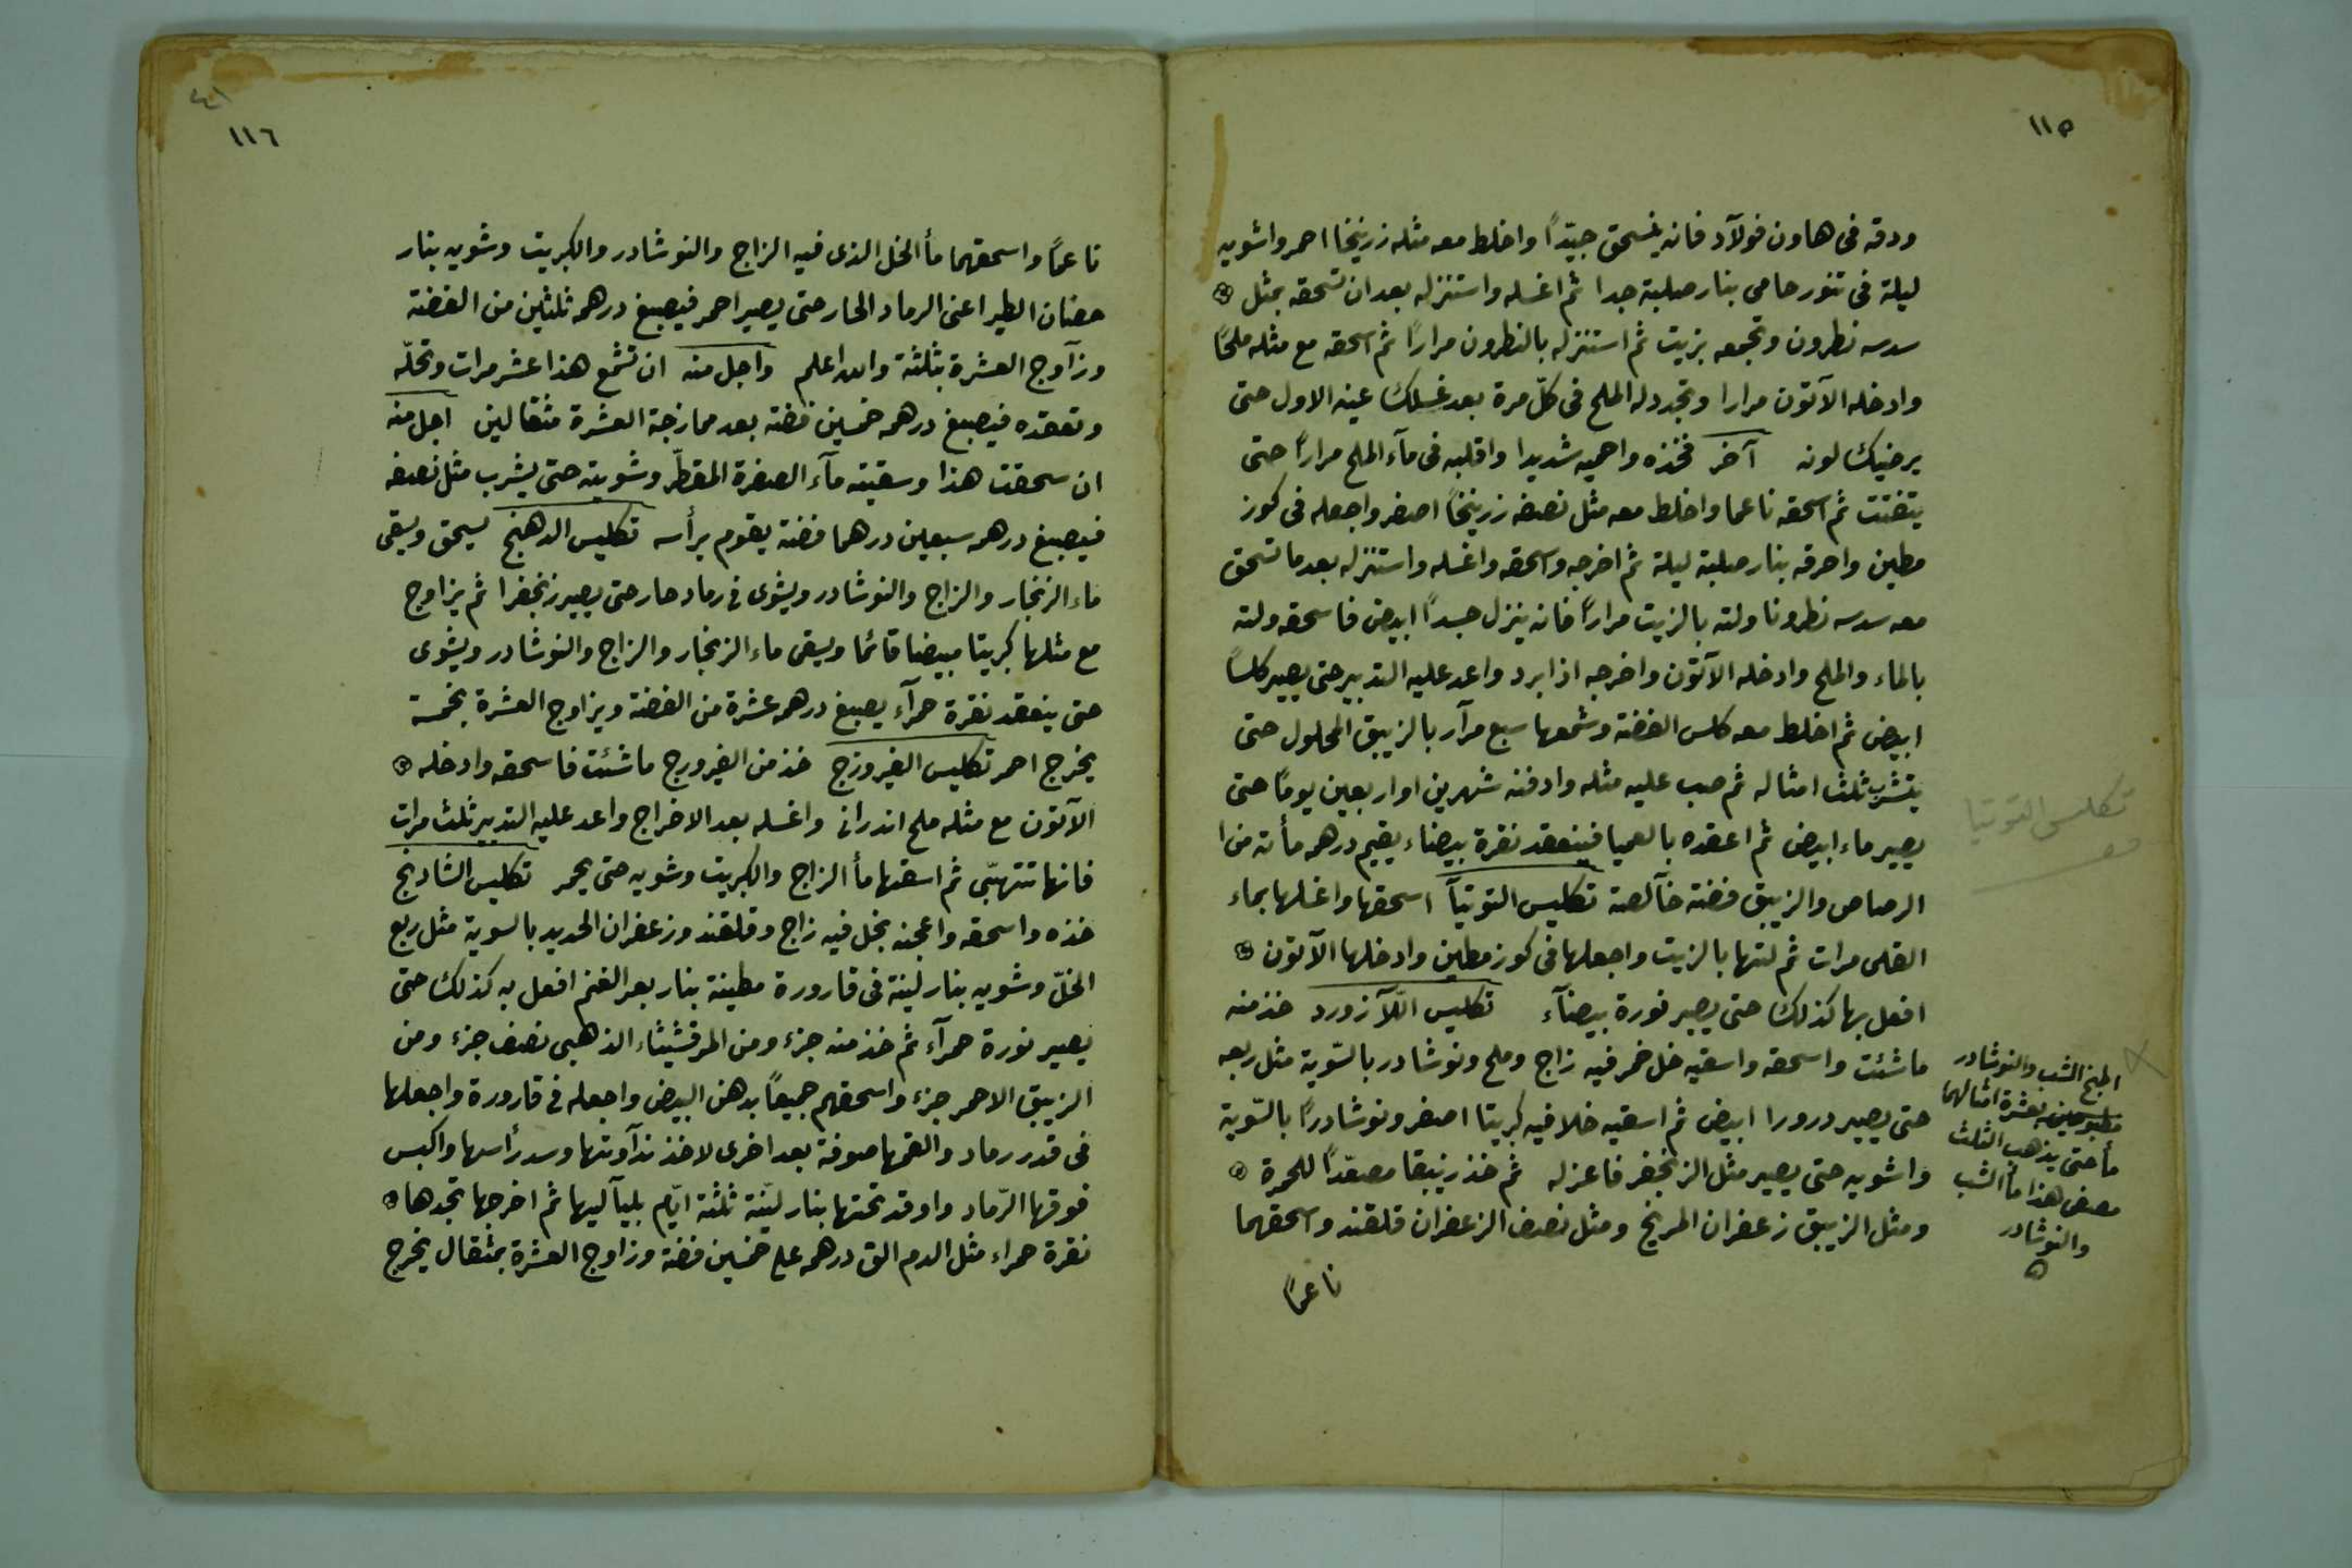 ١١٥
ودقه في هاون فولآد فانه ينسحق جيّدًا واخلط معه مثله زرنيخا احمر واشويه
ليلة في تنور حامى بنار صلبة جدا ثم اغسله واستنزله بعد ان تسحقه بمثل
سدسه نطرون وتجمعه بزيت ثم استنزله بالنطرون مرارًا ثم اسحقه مع مثله ملحًا
وادخله الآتون مرارا وتجدد له الملح في كلّ مرة بعد غسلك عينه الاول حتى
يرضيك لونه آخر فخذه واحميه شديدا واقلبه في مآء الملح مرارًا حتى
يتفتت ثم اسحقه ناعما واخلط معه مثل نصفه زرنيخًا اصفر واجعله في كوز
مطين واحرقه بنار صلبة ليلة ثم اخرجه واسحقه واغسله واستنزله بعد ما تسحق
معه سدسه نطرونا ولته بالزيت مرارًا فانه ينزل جسدًا ابيض فاسحقه ولته
بالماء والملح وادخله الآتون واخرجه اذا برد واعد عليه التدبير حتى يصير كلسًا
ابيض ثم اخلط معه كلس الفضة وشمعها سبع مرآر بالزيبق المحلول حتى
يتشرب ثلث امثاله ثم صب عليه مثله وادفنه شهرين او اربعين يومًا حتى
يصير ماء ابيض ثم اعقده بالعميا فينعقد نقرة بيضاء يقيم درهم مأته من ا
الرصاص والزيبق فضة خآلصة تكليس التوتيآ اسحقها واغسلها بماء
القلى مرات ثم لتها بالزيت واجعلها في كوز مطين وادخلها الآتون
افعل بها كذلك حتى يصير نورة بيضآء تكليس اللّآزورد خذ منه
ما شئت واسحقه واسقيه خل خمر فيه زاج وملح ونوشادر بالسّوية مثل ربعه
حتى يصير درورا ابيض ثم اسقيه خلا فيه كبريتا اصفر ونوشادرًا بالسّوية
واشويه حتى يصير مثل الزنجفر فاعزله ثم خذ زيبقا مصعّدًا للحمرة
ومثل الزيبق زعفران المريخ ومثل نصف الزعفران قلقند واسحقهما
ناعمًا
تكلس التوتيا
الشب والنوشادر
بعشرة امثالهما
مأ حتى يذهب الثلث
مصفى هذا مأ الشب
والنوشادر
١١٦
ناعمًا واسحقهما مأ الخل الذى فيه الزاج والنوشادر والكبريت وشويه بنار
حضان الطير اعنى الرماد الحار حتى يصير احمر فيصبغ درهم ثلثين من الفضة
وزآوج العشرة بثلثة والله اعلم واجل منه ان تشمع هذا عشر مرات وتحلّه
وتعقده فيصبغ درهمه خمسين فضة بعد ممازجة العشرة مثقالين اجل منه
ان سحقت هذا وسقيته مآء الصفرة المقطّر وشويته حتى يشرب مثل نصفه
فيصبغ درهمه سبعين درهما فضة يقوم برأسه تكليس الدهنج يسحق ويسقى
ماء الزنجار والزاج والنوشادر ويشوى في رماد حار حتى يصير زنجفرا ثم يزاوج
مع مثلها كبريتا مبيضا قائما ويسقى ماء الزنجار والزاج والنوشادر ويشوى
حتى ينعقد نقرة حمرآء يصبغ درهمه عشرة من الفضة ويزاوج العشرة بخمسة
يخرج احمر تكليس الفيروزج خذ من الفيروزج ما شئت فاسحقه وادخله
الآتون مع مثله ملح اندرانى واغسله بعد الاخراج واعد عليه التدبير ثلث مرات
فانها تتهبّى ثم اسقها مأ الزاج والكبريت وشويه حتى يحمر تكليس الشادنج
خذه واسحقه واعجنه بخل فيه زاج وقلقند وزعفران الحديد بالسوية مثل ربع
الخلّ وشويه بنار لينة في قارورة مطينة بنار بعر الغنم افعل به كذلك حتى
يصير نورة حمرآء ثم خذ منه جزء ومن المرقشيثاء الذهبى نصف جزء ومن
الزيبق الاحمر جزء واسحقهم جميعًا بدهن البيض واجعله في قارورة واجعلها
في قدر رماد والقمها صوفة بعد اخرى لاخذ ندآوتها وسد رأسها واكبس
فوقها الرّماد واوقد تحتها بنار ليّنة ثلثة ايّام بليآليها ثم اخرجها تجدها
نقرة حمراء مثل الدم الق درهم على خمسين فضة وزاوج العشرة بمثقال يخرج